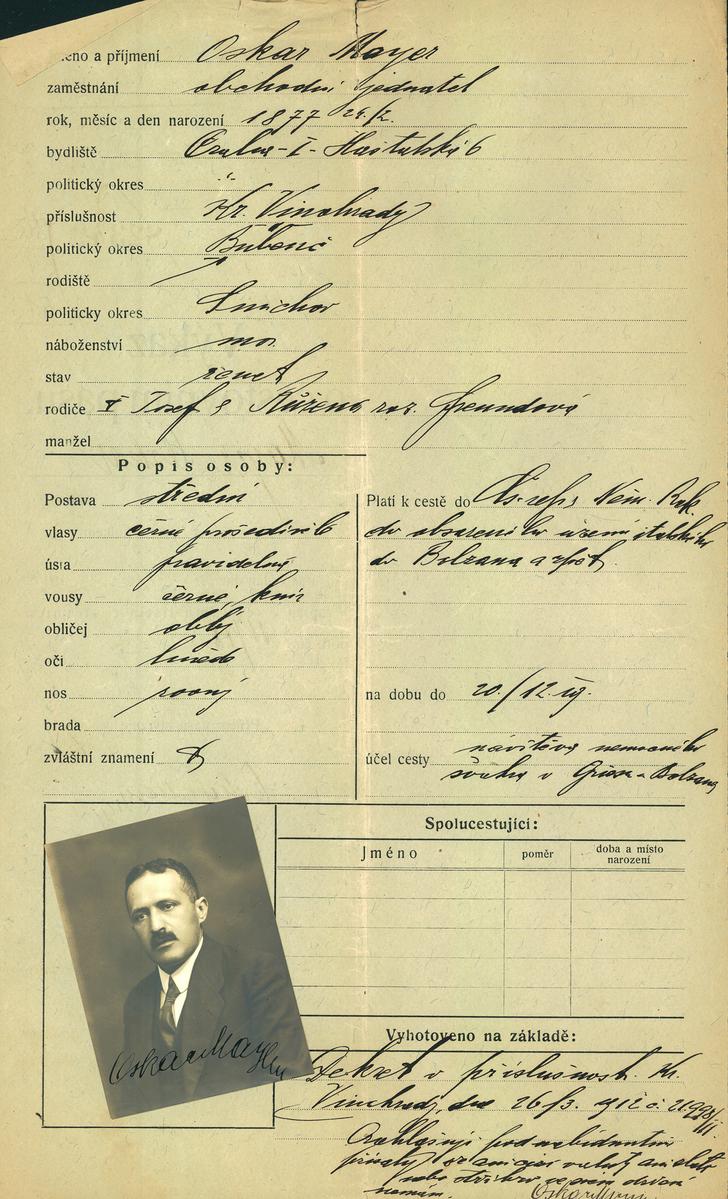 méno a příjmení Oskar Mayer
zaměstnání obchodní jednatel
rok, měsíc a den narození 1877 24./2.
bydliště Praha-I- Haštalská 6
politický okres -"-
příslušnost Kr. Vinohrady
politický okres Bubeneč
rodiště
politicky okres Smíchov
náboženství mos.
stav ženat
rodiče Josef & Růžena roz. Freundová
manžel
Popis osoby:
Postava střední
vlasy černé prošedivělé
ústa pravidelná
vousy černé, knír
obličej oblý
oči hnědé
nos rovný
brada
zvláštní znamení
Platí k cestě do Čs. rep., Něm. Rak.
do obsazeného území italského
do Bolzana a zpět.
na dobu do 20./12. 19.
účel cesty návštěva nemocného
v Gries-Bolzano
Spolucestující:
Jméno
poměr
doba a místo narození
Oskar Mayer
Vyhotoveno na základě:
Dekret o příslušnosti Kr.
Vinohrady, dne 26/3. 1912 č.
Prohlašuji pod
nemám.